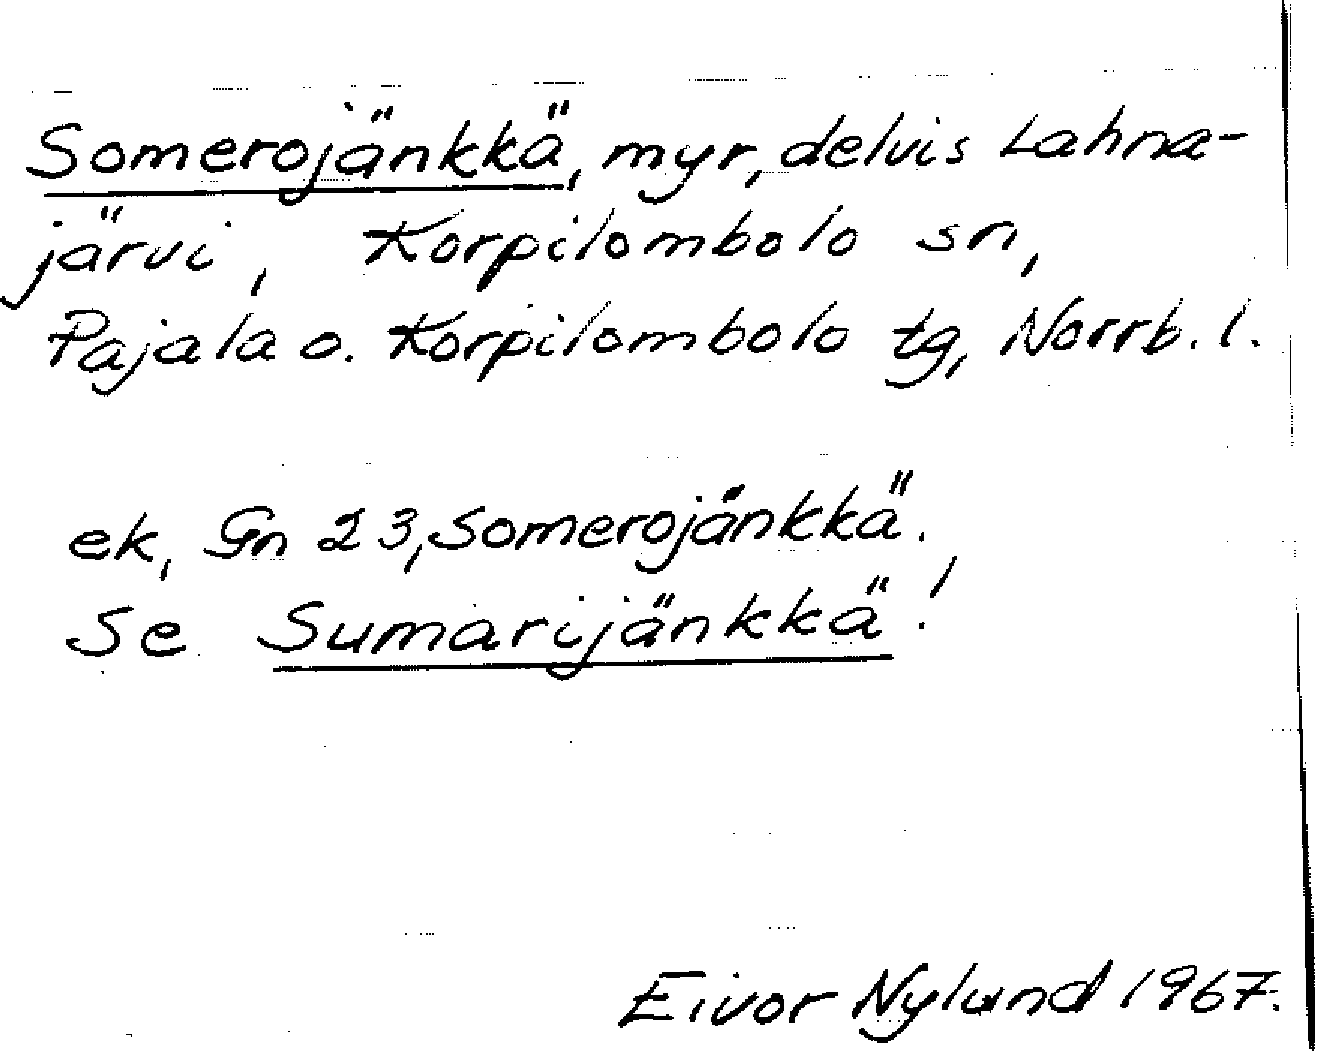 Somerojänkkä, myr, delvis Lahna-
järvi, Korpilombolo sn,
Pajala o. Korpilombolo tg, Norrb. l.
ek, Gn 23, Somerojänkkä.
Se Sumarijänkkä!
Eivor Nylund 1967.